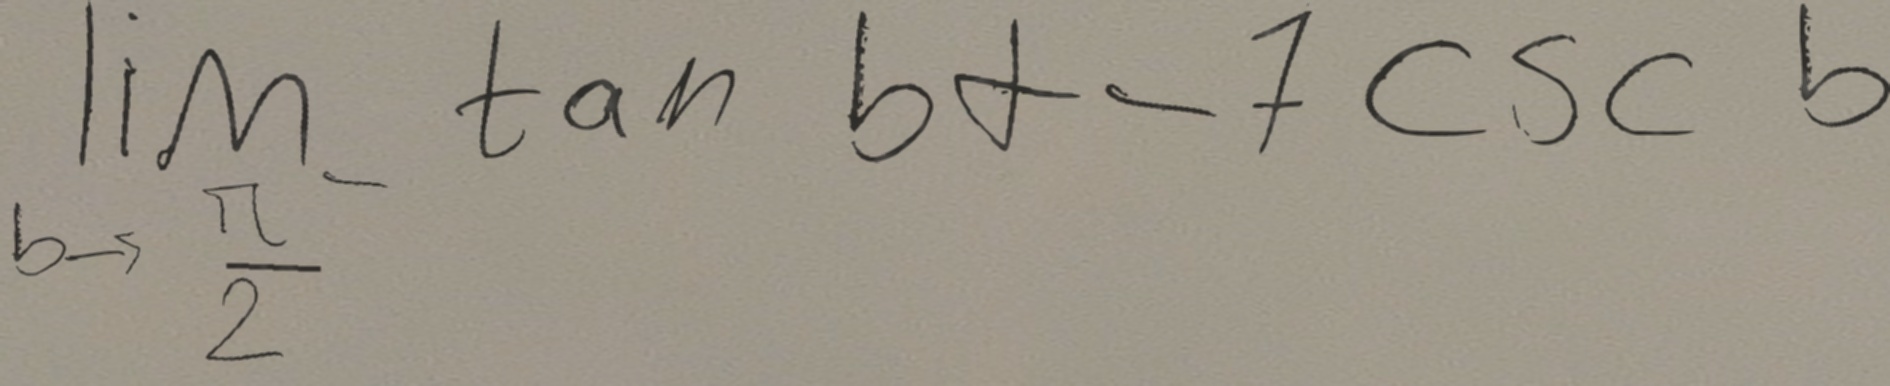 lim_{b \to \frac{\pi}{2}^-} \tan b + -7 \csc b